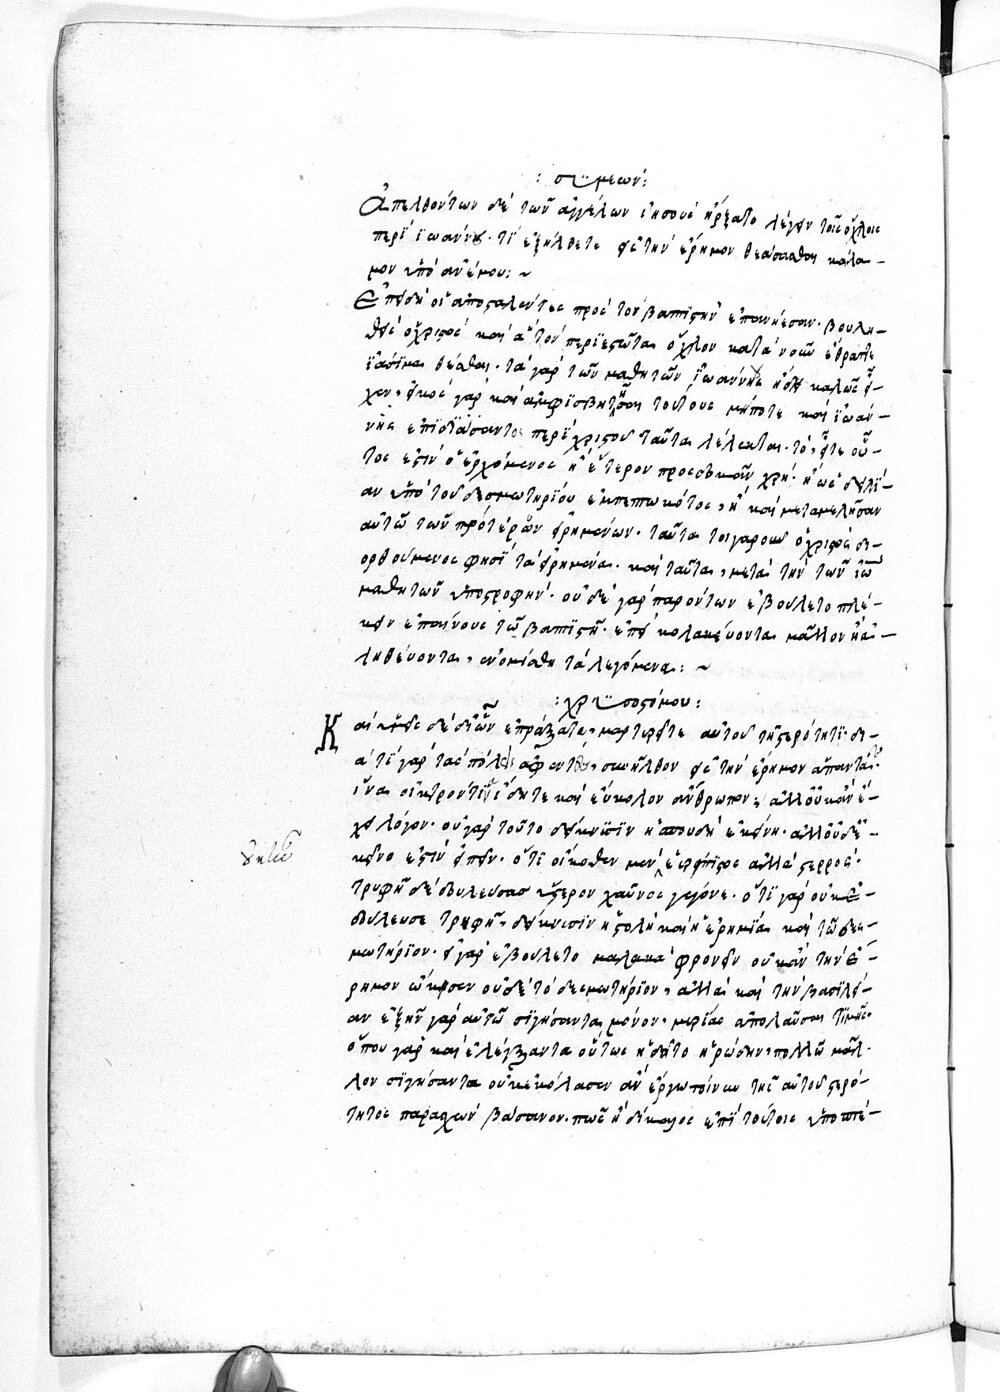 : συμεών :
Ἀπελθόντων δὲ τῶν ἀγγέλων ἰησοῦς ἤρξατο λέγειν τοῖς ὄχλοις
περὶ ἰωάννου· τί ἐξήλθετε εἰς τὴν ἔρημον θεάσασθαι κάλα-
μον ὑπὸ ἀνέμου: ~
Ἐπειδὴ οἱ ἀποσταλέντες πρὸς τὸν βαπτιστὴν ἐπανήεσαν· βουλη-
θεὶς ὁ χριστὸς καὶ αὐτὸν περιεστῶτα ὄχλον κατὰ νοῦν
θεάσθαι· τὰ γὰρ τῶν μαθητῶν ἰωάννης ἤδη καλῶς εἶ-
χεν, εἰκὸς γὰρ καὶ ἀμφισβητῆσαι τούτους μήποτε καὶ ἰωάν-
νης περὶ χριστοῦ ταῦτα λέλεκται· τὸ, εἴτε οὗ-
τος ἐστὶν ὁ ἐρχόμενος ἢ ἕτερον προσδοκᾶν χρή· ἢ ὡς δειλί-
αν ὑπὸ τοῦ δεσμωτηρίου ἐμπεπτωκότος, ἢ καὶ μεταμελῆσαν
αὐτῷ τῶν προτέρων εἰρημένων· ταῦτα τοιγαροῦν ὁ χριστὸς δι-
ορθούμενος φησὶ τὰ εἰρημένα· καὶ ταῦτα, μετὰ τὴν τῶν ἰω
μαθητῶν ὑποστροφήν· οὐδὲ γὰρ παρόντων ἐβούλετο πλέ-
κειν ἐπαίνους τῷ βαπτιστῇ· ἐπεὶ κολακεύοντα μᾶλλον ἢ ἀ-
ληθεύοντα, ἐνομίσθη τὰ λεγόμενα: ~
: χρυσοστόμου :
Καὶ δὲ δι' ὧν ἐπράξατε, μαρτυρεῖτε αὐτοῦ τῇ στερότητι· δι-
ὰ τί γὰρ τὰς πόλεις ἀφέντες, συνήλθον εἰς τὴν ἔρημον ἅπαντες·
ἵνα οἰκτρόν τινα ἴδητε καὶ εὔκολον ἄνθρωπον, ἀλλ' οὐκ ἂν ἔ-
χοι λόγον· οὐ γὰρ τοῦτο δείκνυσιν ἡ σπουδὴ ἐκείνη· ἀλλ' οὐδὲ
κεῖνο ἐστὶν εἰπεῖν· ὅτι οἴκοθεν μὲν εὐρίπιστος ἀλλὰ στερρός·
τρυφῇ δὲ δουλεύσας ὕστερον χαῦνος γέγονε· ὅτι γὰρ οὐκ ἐ-
δούλευσε τρυφῇ, δείκνυσιν ἡ στολὴ καὶ ἡ ἐρημία καὶ τὸ δεσ-
μωτήριον· εἰ γὰρ ἐβούλετο μαλακὰ φρονεῖν οὐκ ἂν τὴν ἔ-
ρημον ᾤκησεν οὐδὲ τὸ δεσμωτήριον, ἀλλὰ καὶ τὴν βασιλεί-
αν ἐξῆν γὰρ αὐτῷ σιγήσαντα μόνον· μυρίας ἀπολαῦσαι τιμῆς·
ὅπου γὰρ καὶ ἐλέγξαντα οὕτως ᾐδεῖτο ἡρώδης, πολλῷ μᾶλ-
λον σιγήσαντα οὐκ ἐκόλασεν ἂν τῆς αὐτοῦ στερό-
τητος παρασχὼν βάσανον· πῶς ἂν δίκαιος ἐπὶ τούτοις ὑποπτε-